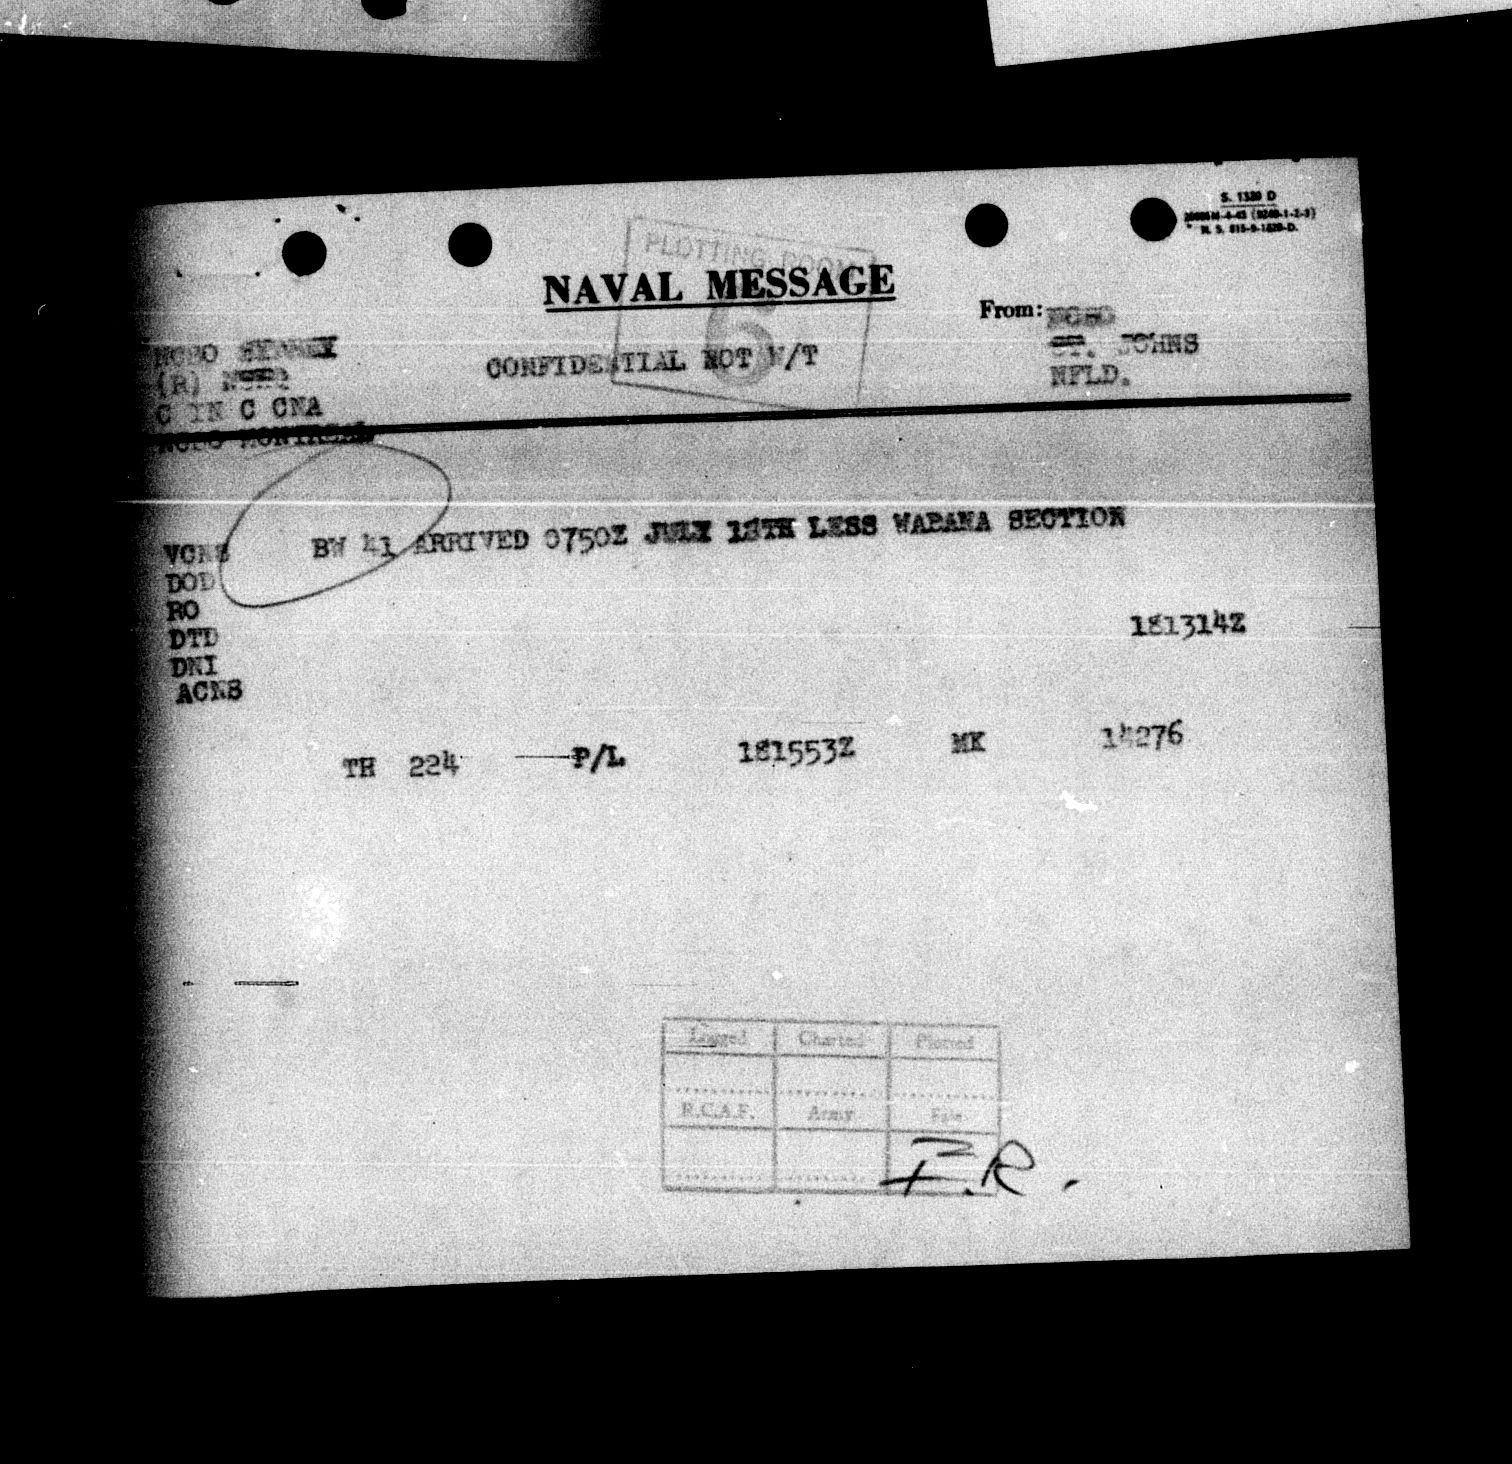 S. 1320 D
PLOTTING ROOM
NAVAL MESSAGE
6
From:
NCSO SYDNEY
CONFIDENTIAL NOT W/T
ST. JOHNS
(R) NSHQ
NFLD.
C IN C CNA
NCSO MONTREAL
VCNS BW 41 ARRIVED 0750Z JULY 18TH LESS WABANA SECTION
DOD
RO
181314Z
DTD
DNI
ACNS
TH 224 P/L 181553Z MK 14276
Logged Charted Plotted
R.C.A.F. Army
F.R.